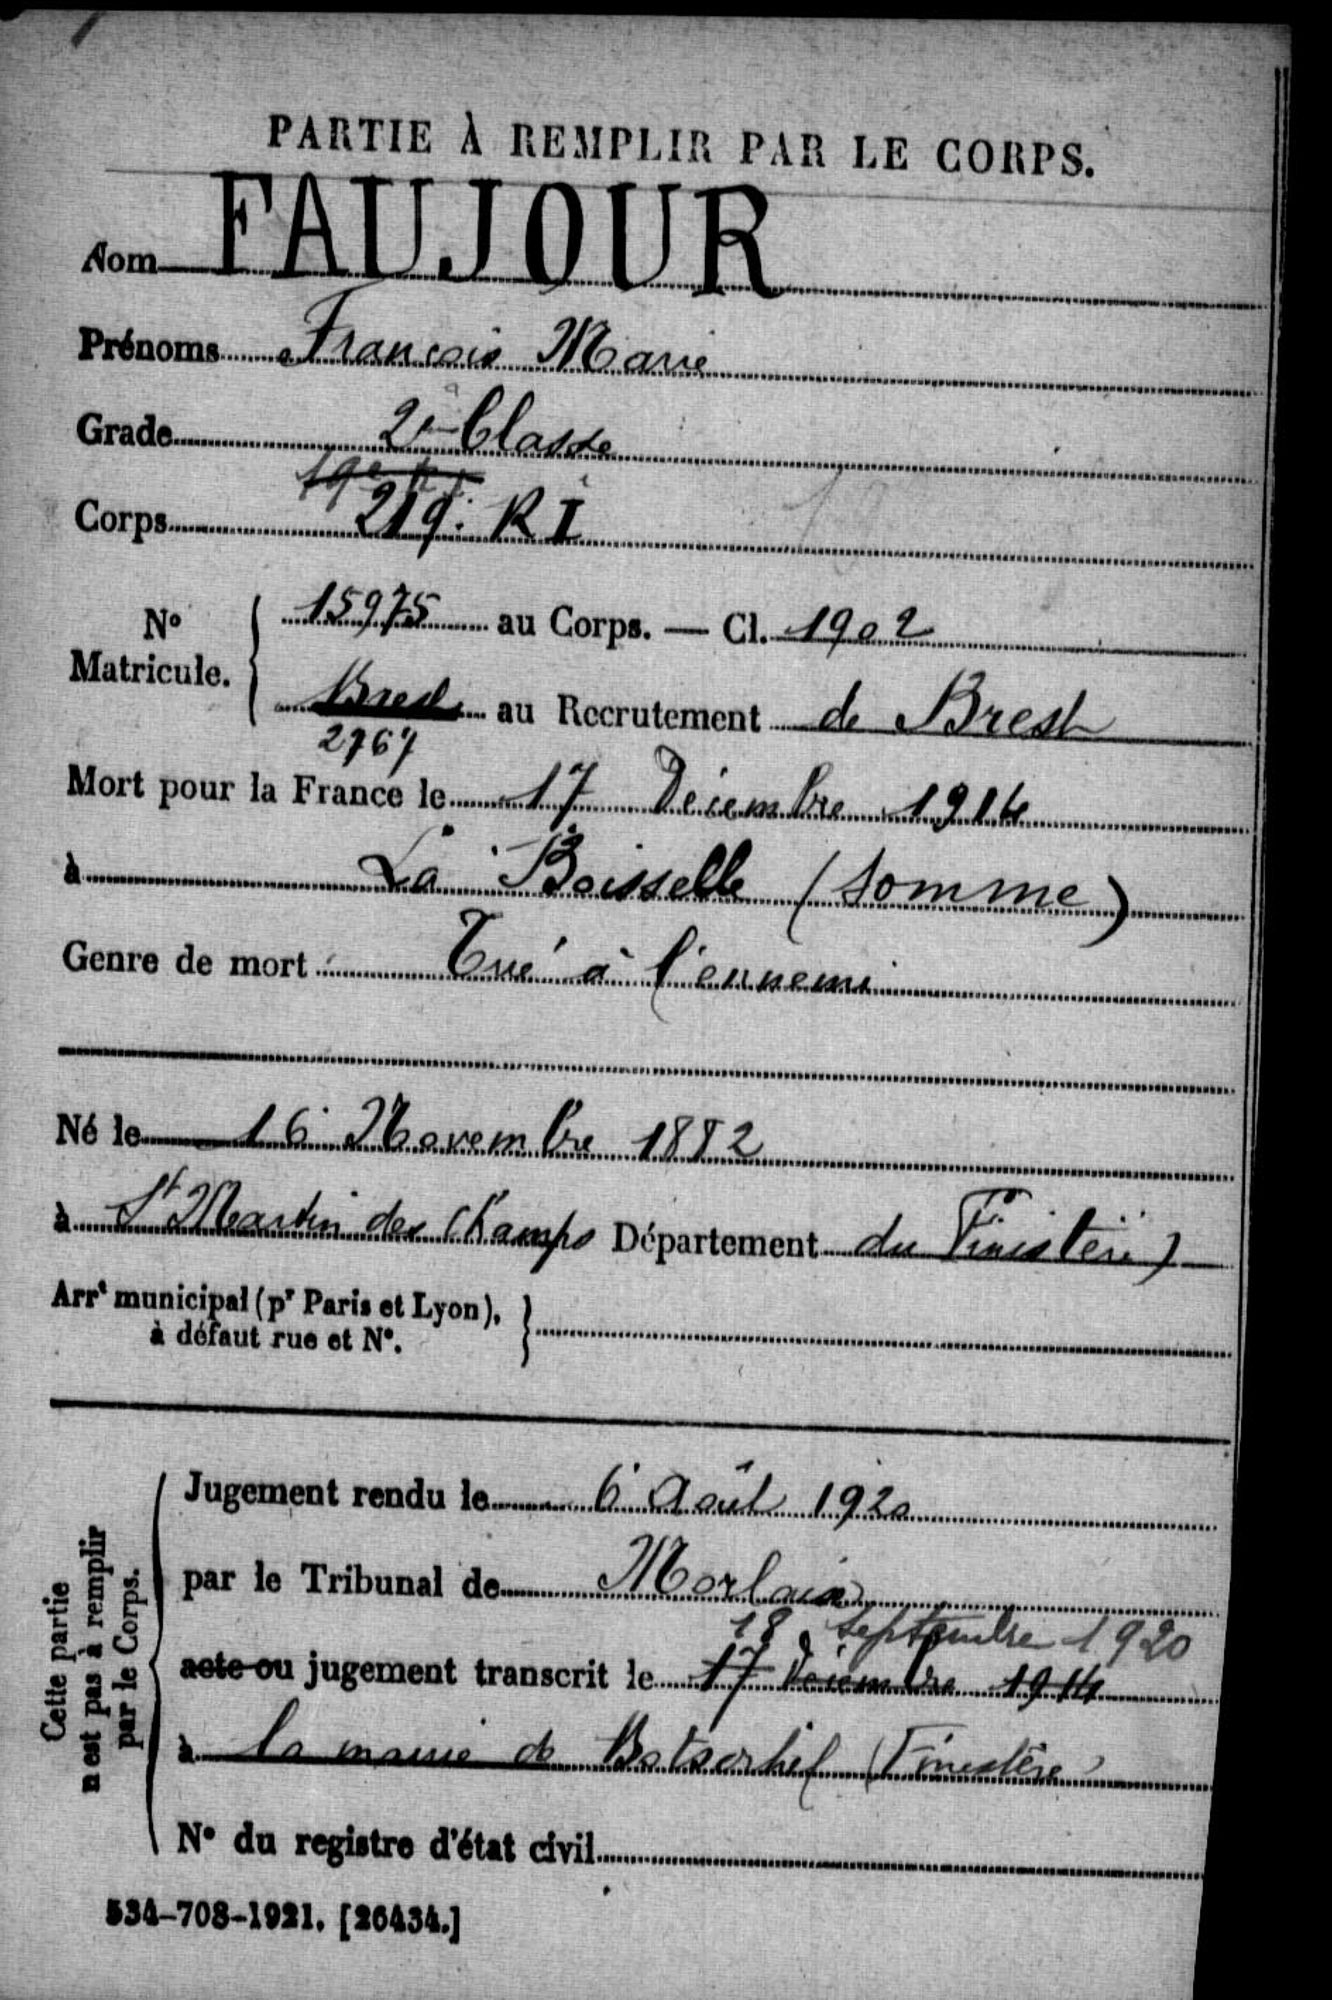 PARTIE À REMPLIR PAR LE CORPS.
Nom FAUJOUR
Prénoms François Marie
Grade 2e Classe
19e R I
Corps 219. R I
No Matricule. { 15975 au Corps. — Cl. 1902
Brest au Recrutement de Brest
2767
Mort pour la France le 17 Décembre 1914
à La Boisselle (Somme)
Genre de mort Tué à l'ennemi
Né le 16 Novembre 1882
à St Martin des Champs Département du Finistère)
Arrt municipal (pr Paris et Lyon), à défaut rue et No. }
Cette partie n'est pas à remplir par le Corps.
Jugement rendu le 6 Août 1920
par le Tribunal de Morlaix
18 Septembre 1920
acte ou jugement transcrit le 17 Décembre 1914
à la mairie de Botsorhel (Finistère)
No du registre d'état civil
534-708-1921. [26434.]